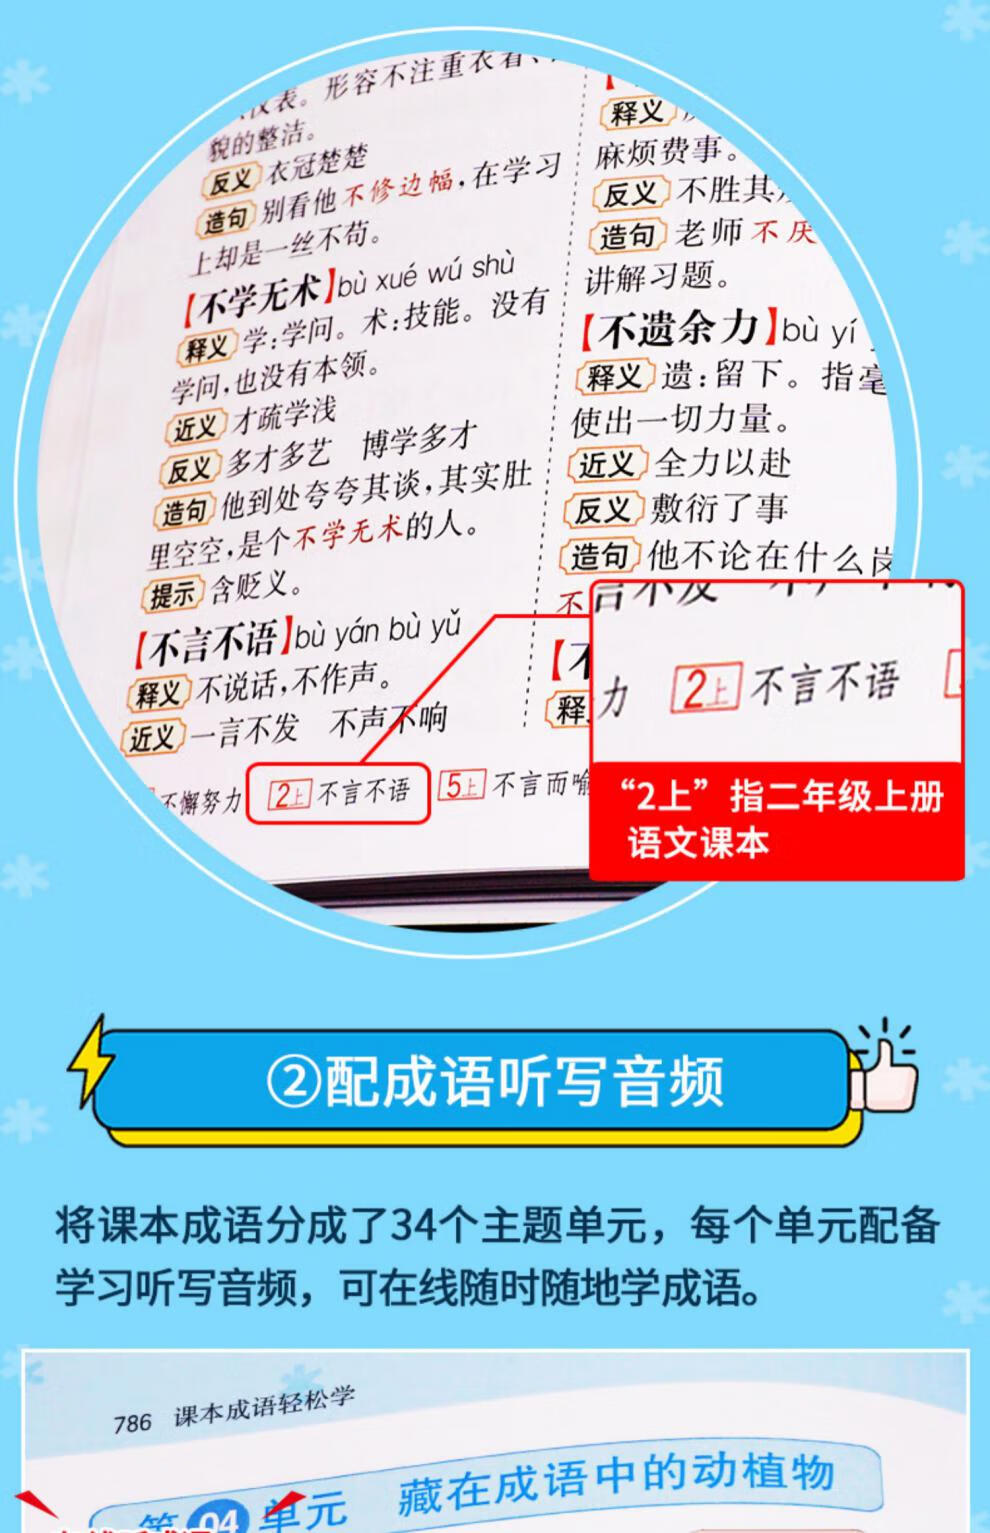 仪表。形容不注重衣着、
貌的整洁。
反义 衣冠楚楚
造句 别看他不修边幅,在学习
上却是一丝不苟。
【不学无术】bù xué wú shù
释义 学:学问。术:技能。没有
学问,也没有本领。
近义 才疏学浅
反义 多才多艺 博学多才
造句 他到处夸夸其谈,其实肚
里空空,是个不学无术的人。
提示 含贬义。
【不言不语】bù yán bù yǔ
释义 不说话,不作声。
近义 一言不发 不声不响
不懈努力 2上 不言不语 5上 不言而喻
释义
麻烦费事。
反义 不胜其
造句 老师不厌
讲解习题。
【不遗余力】bù yí
释义 遗:留下。指毫
使出一切力量。
近义 全力以赴
反义 敷衍了事
造句 他不论在什么岗
不
【不
释
言不发 不声
力 2上 不言不语
“2上”指二年级上册
语文课本
②配成语听写音频
将课本成语分成了34个主题单元，每个单元配备
学习听写音频，可在线随时随地学成语。
786 课本成语轻松学
第04单元 藏在成语中的动植物